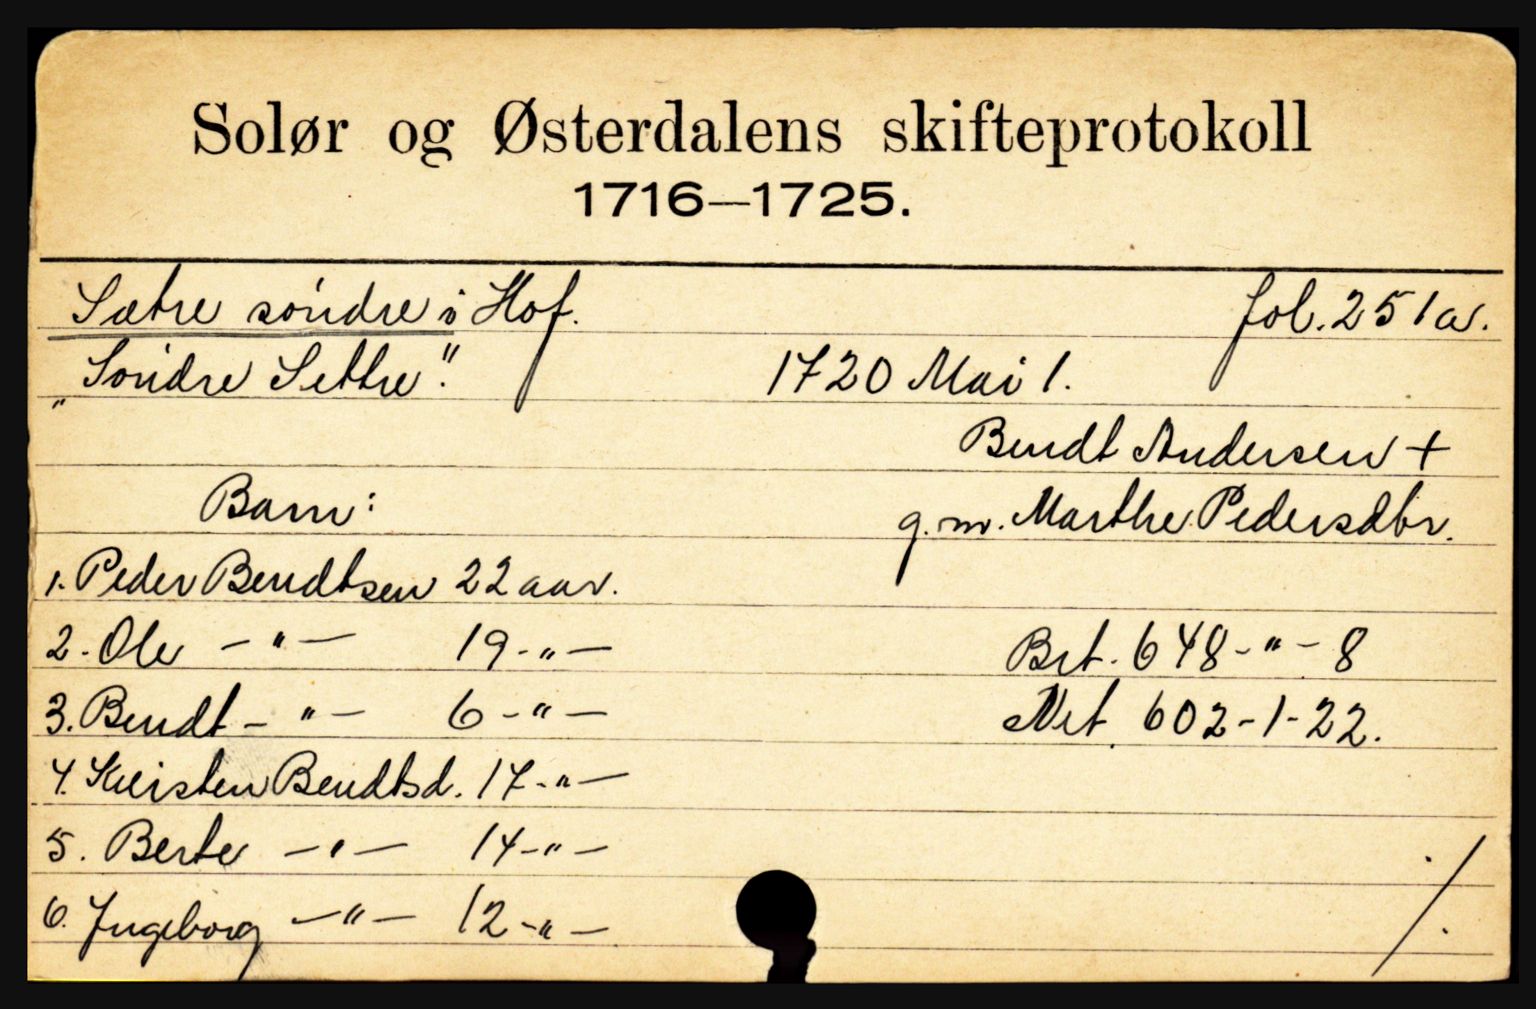 Solør og Østerdalens skifteprotokoll
1716—1725.
Sætre søndre i Hof. fol. 251a.
„Søndre Settre". 1720 Mai 1.
Bendt Andersen +
Barn: g. m. Marthe Pedersdtr.
1. Peder Bendtsen 22 aar.
2. Ole —"— 19-"— Brt. 648-"-8
3. Bendt —"— 6-"— Net. 602-1-22.
4. Kiersten Bendtsd. 17-"—
5. Berte —"— 14-"—
6. Ingeborg —"— 12-"— ./.